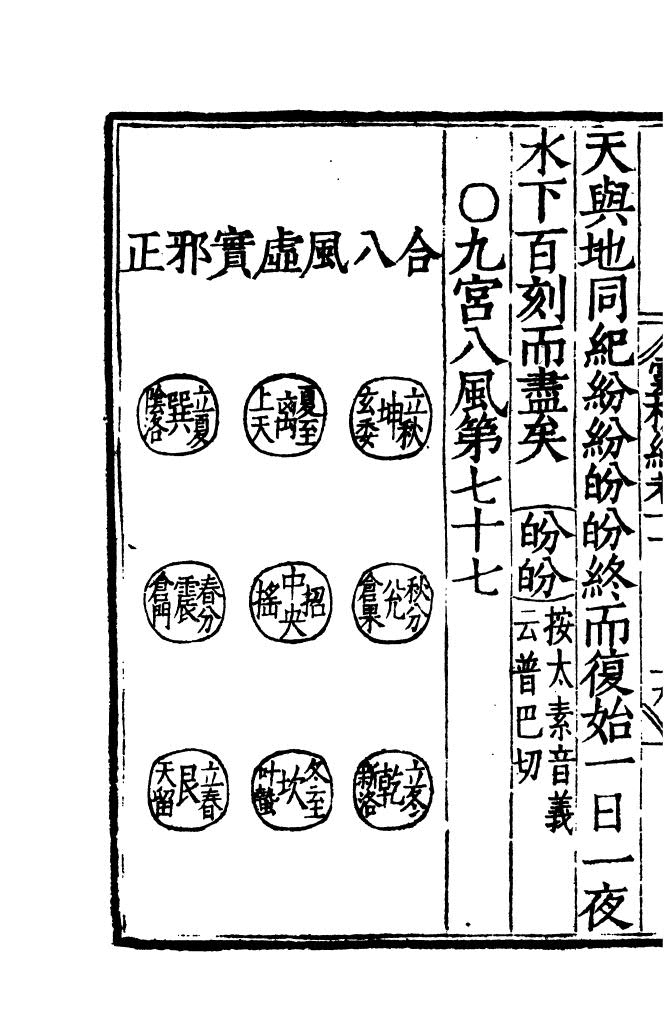 天與地同紀紛紛終而復始一日一夜
水下百刻而盡矣
按太素音義
云普巴切
○九宮八風第七十七
合八風虛實邪正
立秋
坤
玄委
夏至
上天
立夏
巽
陰洛
秋分
兊
倉果
招
中央
搖
春分
震
倉門
立冬
乾
新洛
冬至
坎
叶蟄
立春
艮
天留